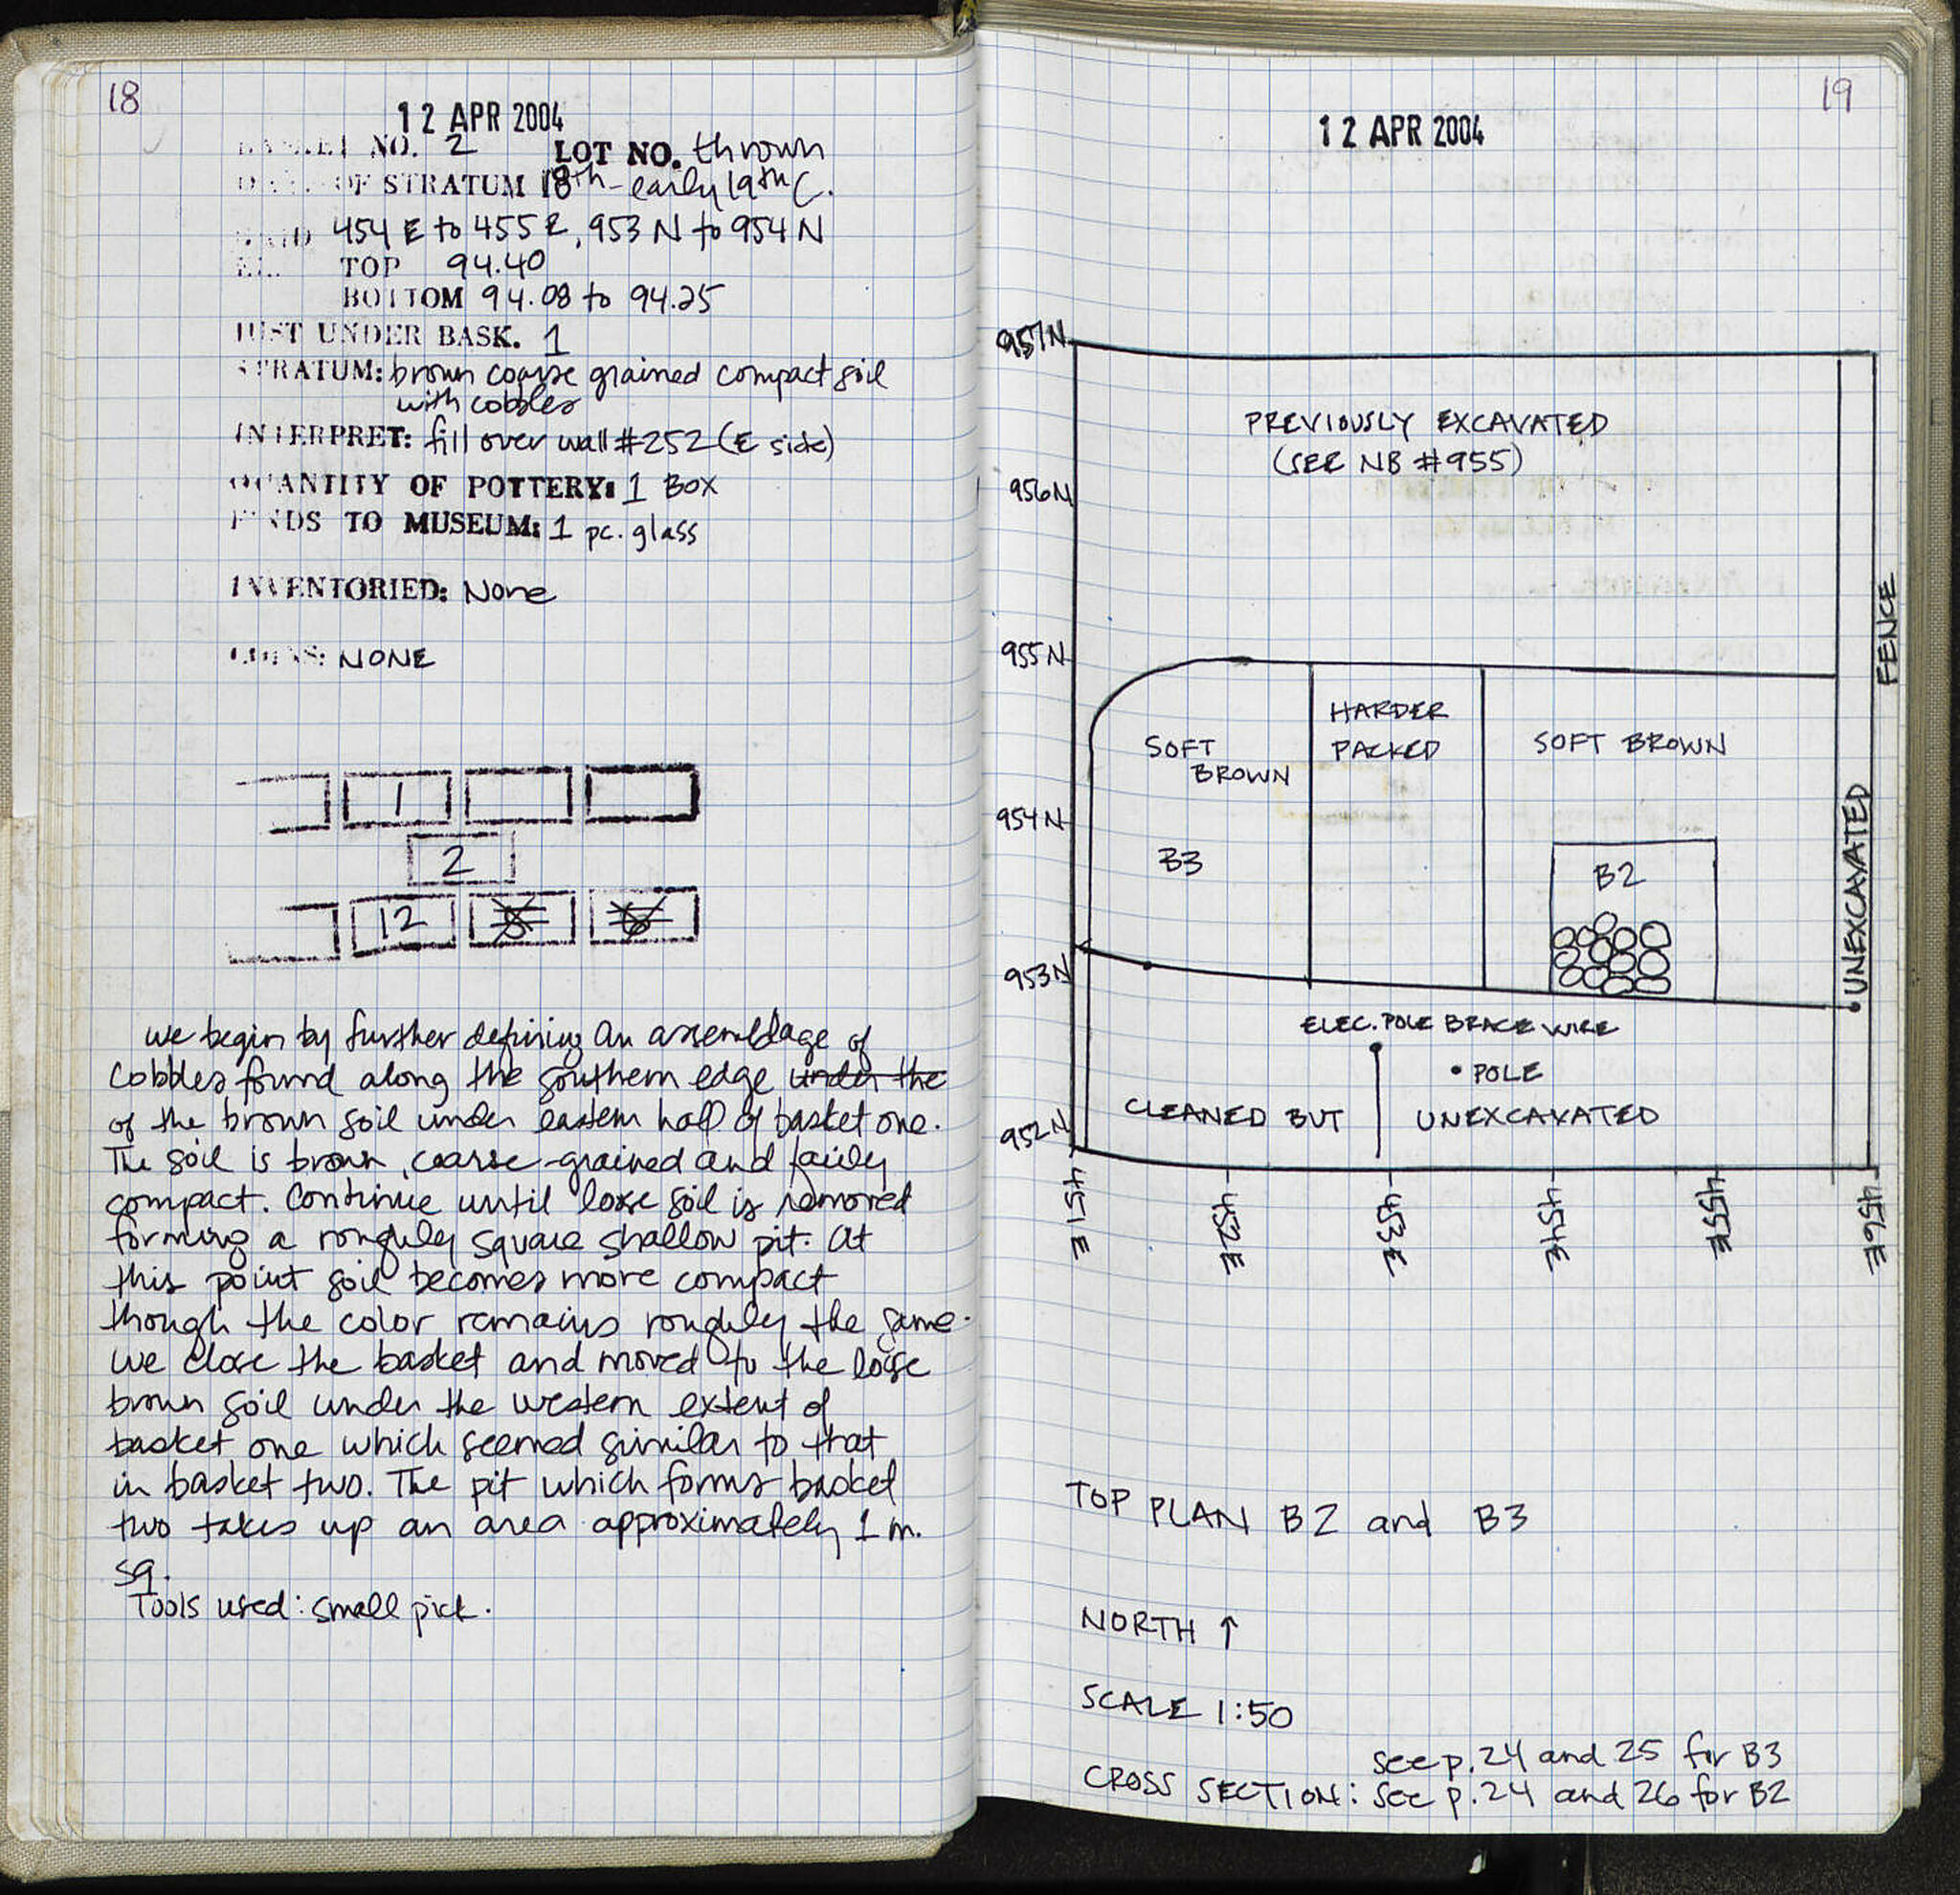 18
12 APR 2004
BASKET NO. 2 LOT NO. thrown
DATE OF STRATUM 18th - early 19th C.
GRID 454 E to 455 E, 953 N to 954 N
EL. TOP 94.40
BOTTOM 94.08 to 94.25
JUST UNDER BASK. 1
STRATUM: brown coarse grained compact soil
with cobbles
INTERPRET: fill over wall #252 (E side)
QUANTITY OF POTTERY: 1 BOX
FINDS TO MUSEUM: 1 pc. glass
INVENTORIED: None
COINS: NONE
1
2
12
we begin by further defining an assemblage of
cobbles found along the southern edge under the
of the brown soil under eastern half of basket one.
The soil is brown, coarse-grained and fairly
compact. Continue until loose soil is removed
forming a roughly square shallow pit. At
this point soil becomes more compact
though the color remains roughly the same.
we close the basket and moved to the loose
brown soil under the western extent of
basket one which seemed similar to that
in basket two. The pit which forms basket
two takes up an area approximately 1 m.
sq.
Tools used: small pick.
19
12 APR 2004
957N
PREVIOUSLY EXCAVATED
(SEE NB #955)
956N
FENCE
955N
HARDER
PACKED
SOFT
BROWN
SOFT BROWN
954N
B3
B2
UNEXCAVATED
953N
ELEC. POLE BRACE WIRE
POLE
CLEANED BUT UNEXCAVATED
952N
451E
452E
453E
454E
455E
456E
TOP PLAN B2 and B3
NORTH ↑
SCALE 1:50
see p. 24 and 25 for B3
CROSS SECTION: see p. 24 and 26 for B2